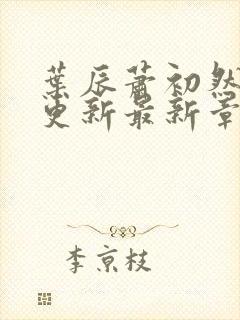 葉辰蕭初然
更新最新章
李京枝